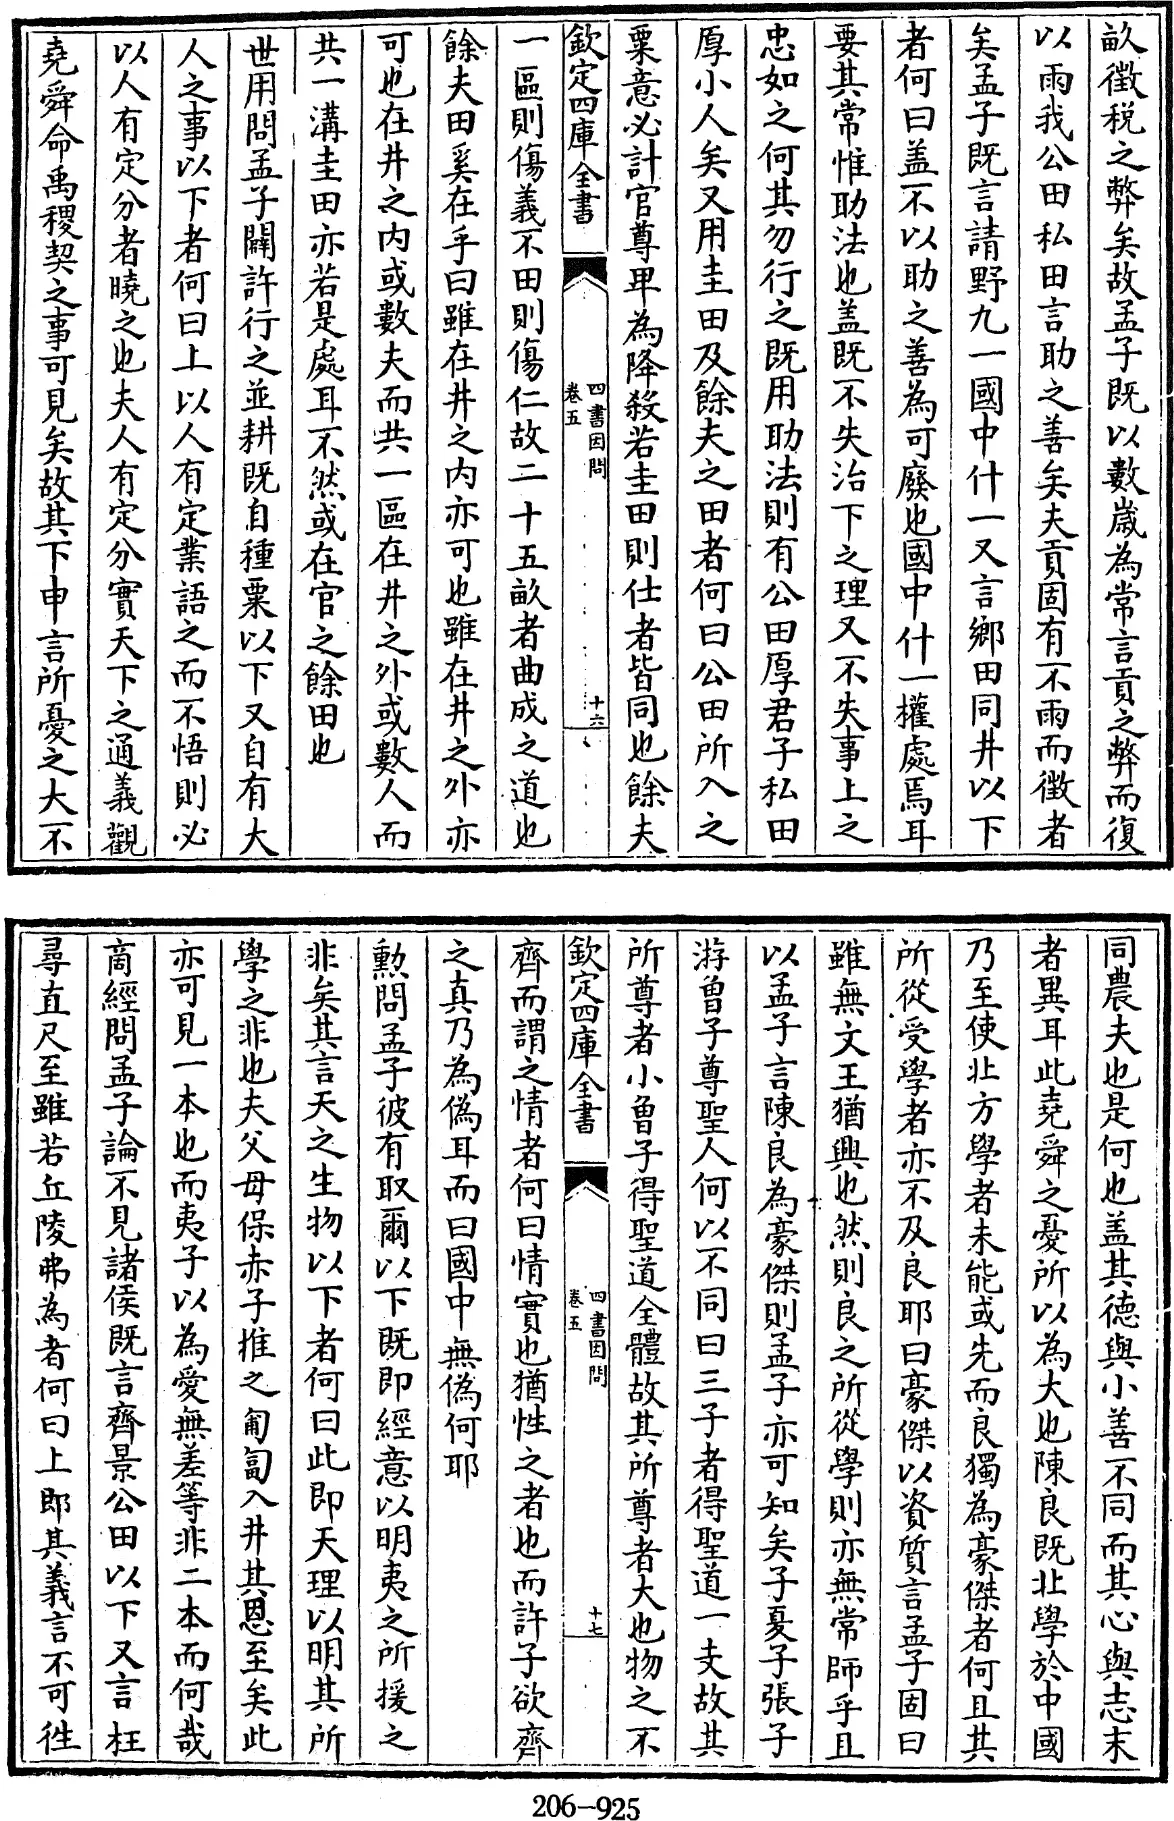 畝徵税之弊矣故孟子既以數歲為常言貢之弊而復
以雨我公田私田言助之善矣夫貢固有不雨而徵者
矣孟子既言請野九一國中什一又言鄉田同井以下
者何曰盖不以助之善為可廢也國中什一權處焉耳
要其常惟助法也盖既不失治下之理又不失事上之
忠如之何其勿行之既用助法則有公田厚君子私田
厚小人矣又用圭田及餘夫之田者何曰公田所入之
粟意必計官尊卑為降殺若圭田則仕者皆同也餘夫
欽定四庫全書
四書因問
卷五
十六
一區則傷義不田則傷仁故二十五畝者曲成之道也
餘夫田奚在乎曰雖在井之内亦可也雖在井之外亦
可也在井之内或數夫而共一區在井之外或數人而
共一溝圭田亦若是處耳不然或在官之餘田也
世用問孟子闢許行之並耕既自種粟以下又自有大
人之事以下者何曰上以人有定業語之而不悟則必
以人有定分者曉之也夫人有定分實天下之通義觀
堯舜命禹稷契之事可見矣故其下申言所憂之大不
同農夫也是何也盖其德與小善不同而其心與志末
者異耳此堯舜之憂所以為大也陳良既北學於中國
乃至使北方學者未能或先而良獨為豪傑者何且其
所從受學者亦不及良耶曰豪傑以資質言孟子固曰
雖無文王猶興也然則良之所從學則亦無常師乎且
以孟子言陳良為豪傑則孟子亦可知矣子夏子張子
游曾子尊聖人何以不同曰三子者得聖道一支故其
所尊者小曾子得聖道全體故其所尊者大也物之不
欽定四庫全書
四書因問
卷五
十七
齊而謂之情者何曰情實也猶性之者也而許子欲齊
之真乃為偽耳而曰國中無偽何耶
勲問孟子彼有取爾以下既即經意以明夷之所援之
非矣其言天之生物以下者何曰此即天理以明其所
學之非也夫父母保赤子推之匍匐入井其恩至矣此
亦可見一本也而夷子以為愛無差等非二本而何哉
商經問孟子論不見諸侯既言齊景公田以下又言枉
尋直尺至雖若丘陵弗為者何曰上郎其義言不可徃
206-925